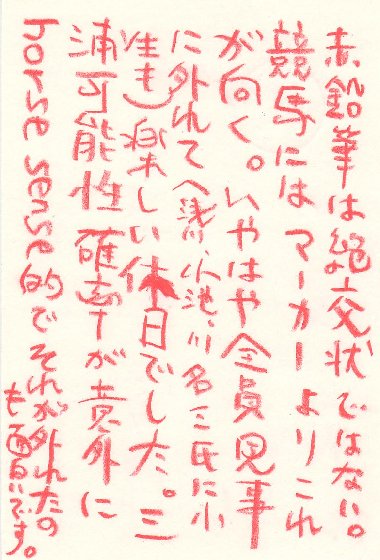 赤鉛筆は絶交状ではない。
競馬にはマーカーよりこれ
が向く。いやはや全員見事
に外れて(浅川、小池、川名三氏に小
生も)楽しい休日でした。三
浦可能性確率が意外に
horse sense的でそれが外れたの
も面白いです。